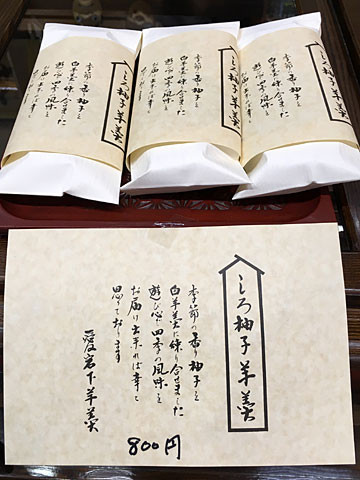 しろ柚子羊羹
季節の香り柚子を
白羊羹に練り合せました
遊び心四季の風味を
お届け出来れば幸と
思っております
愛宕下羊羹
800円
しろ柚子羊羹
季節の香り柚子を
白羊羹に練り合せました
遊び心四季の風味を
お届け出来れば幸と
しろ柚子羊羹
季節の香り柚子を
白羊羹に練り合せました
遊び心四季の風味を
しろ柚子羊羹
季節の香り柚子を
白羊羹に練り合せました
遊び心四季の風味を
お届け出来れば幸と